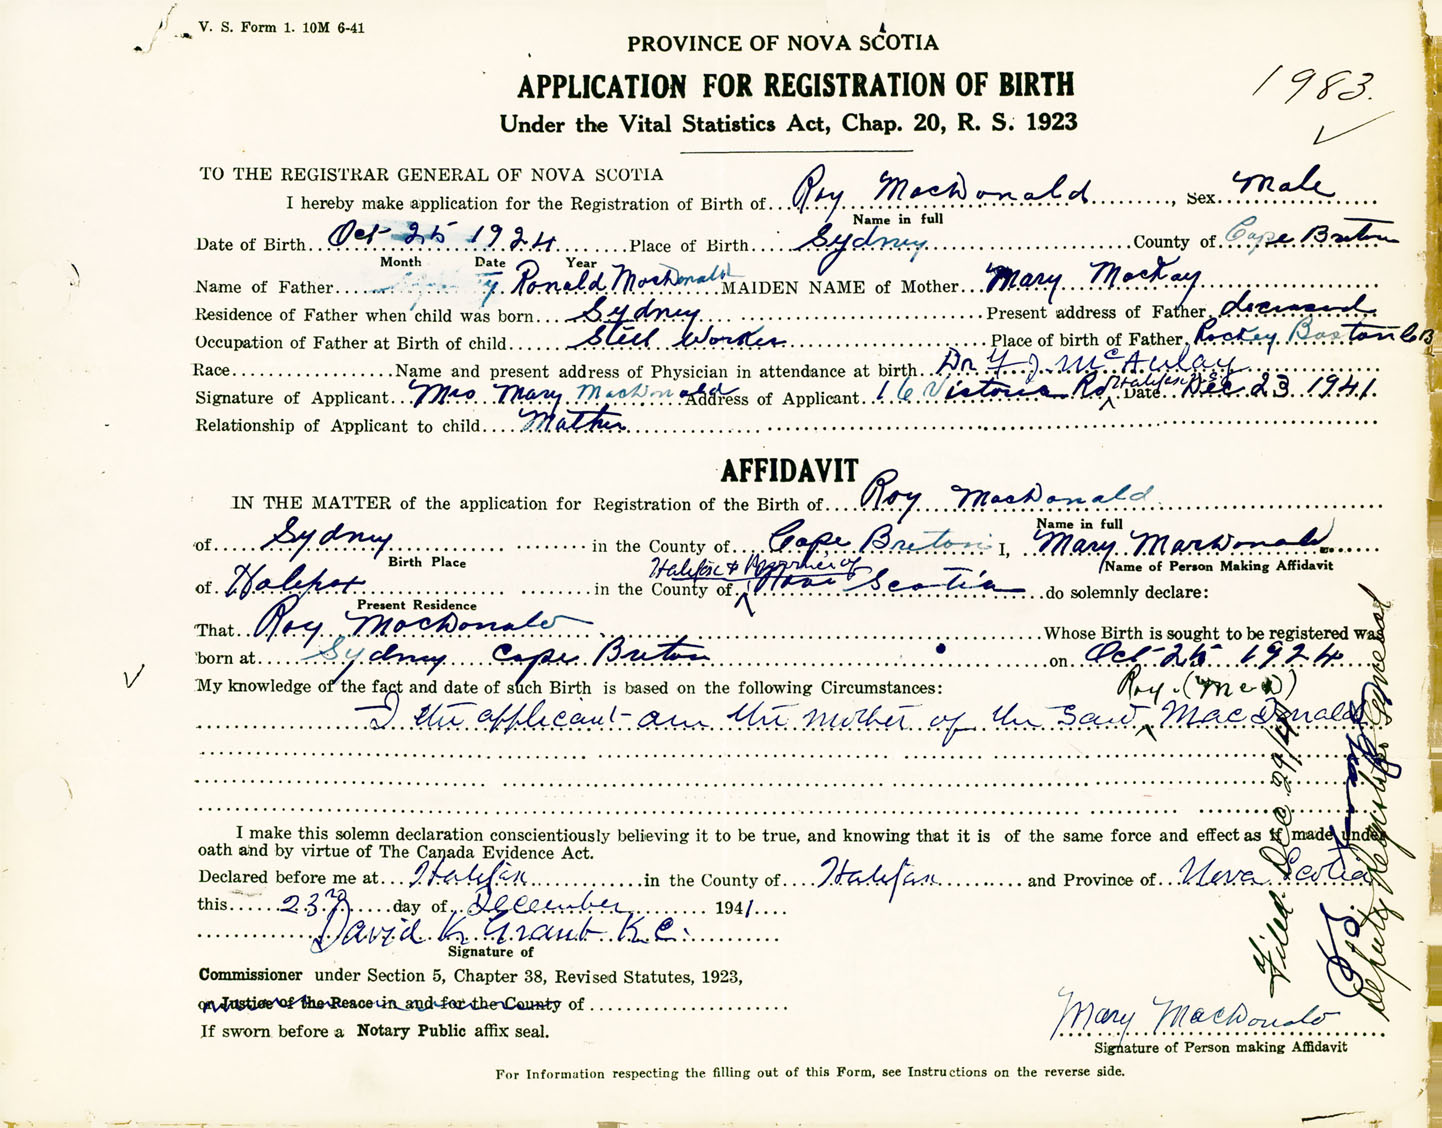 V. S. Form 1. 10M 6-41
PROVINCE OF NOVA SCOTIA
APPLICATION FOR REGISTRATION OF BIRTH
1983.
Under the Vital Statistics Act, Chap. 20, R. S. 1923
TO THE REGISTRAR GENERAL OF NOVA SCOTIA
I hereby make application for the Registration of Birth of Roy MacDonald, Sex Male
Name in full
Date of Birth Oct 25 1924 Place of Birth Sydney County of Cape Breton
Month Date Year
Name of Father Ronald MacDonald MAIDEN NAME of Mother Mary MacKay
Residence of Father when child was born Sydney Present address of Father deceased
Occupation of Father at Birth of child Steel Worker Place of birth of Father Rockey Boston C B
Race Name and present address of Physician in attendance at birth Dr. McAulay
Signature of Applicant Mrs Mary MacDonald Address of Applicant 16 Victoria Rd Halifax N.S. Date Dec 23 1941.
Relationship of Applicant to child Mother
AFFIDAVIT
IN THE MATTER of the application for Registration of the Birth of Roy MacDonald
Name in full
of Sydney in the County of Cape Breton I, Mary MacDonald
Birth Place Name of Person Making Affidavit
Halifax & Province of
of Halifax in the County of Nova Scotia do solemnly declare:
Present Residence
That Roy MacDonald Whose Birth is sought to be registered was
born at Sydney Cape Breton on Oct 25 1924
My knowledge of the fact and date of such Birth is based on the following Circumstances:
Roy (McD)
I the applicant am the mother of the said MacDonald
I make this solemn declaration conscientiously believing it to be true, and knowing that it is of the same force and effect as if made under
oath and by virtue of The Canada Evidence Act.
Declared before me at Halifax in the County of Halifax and Province of Nova Scotia
this 23rd day of December 1941
David K Grant K.C.
Signature of
Commissioner under Section 5, Chapter 38, Revised Statutes, 1923,
or Justice of the Peace in and for the County of
If sworn before a Notary Public affix seal.
Mary MacDonald
Signature of Person making Affidavit
For Information respecting the filling out of this Form, see Instructions on the reverse side.
Filed Dec 29/41
Deputy Registrar General